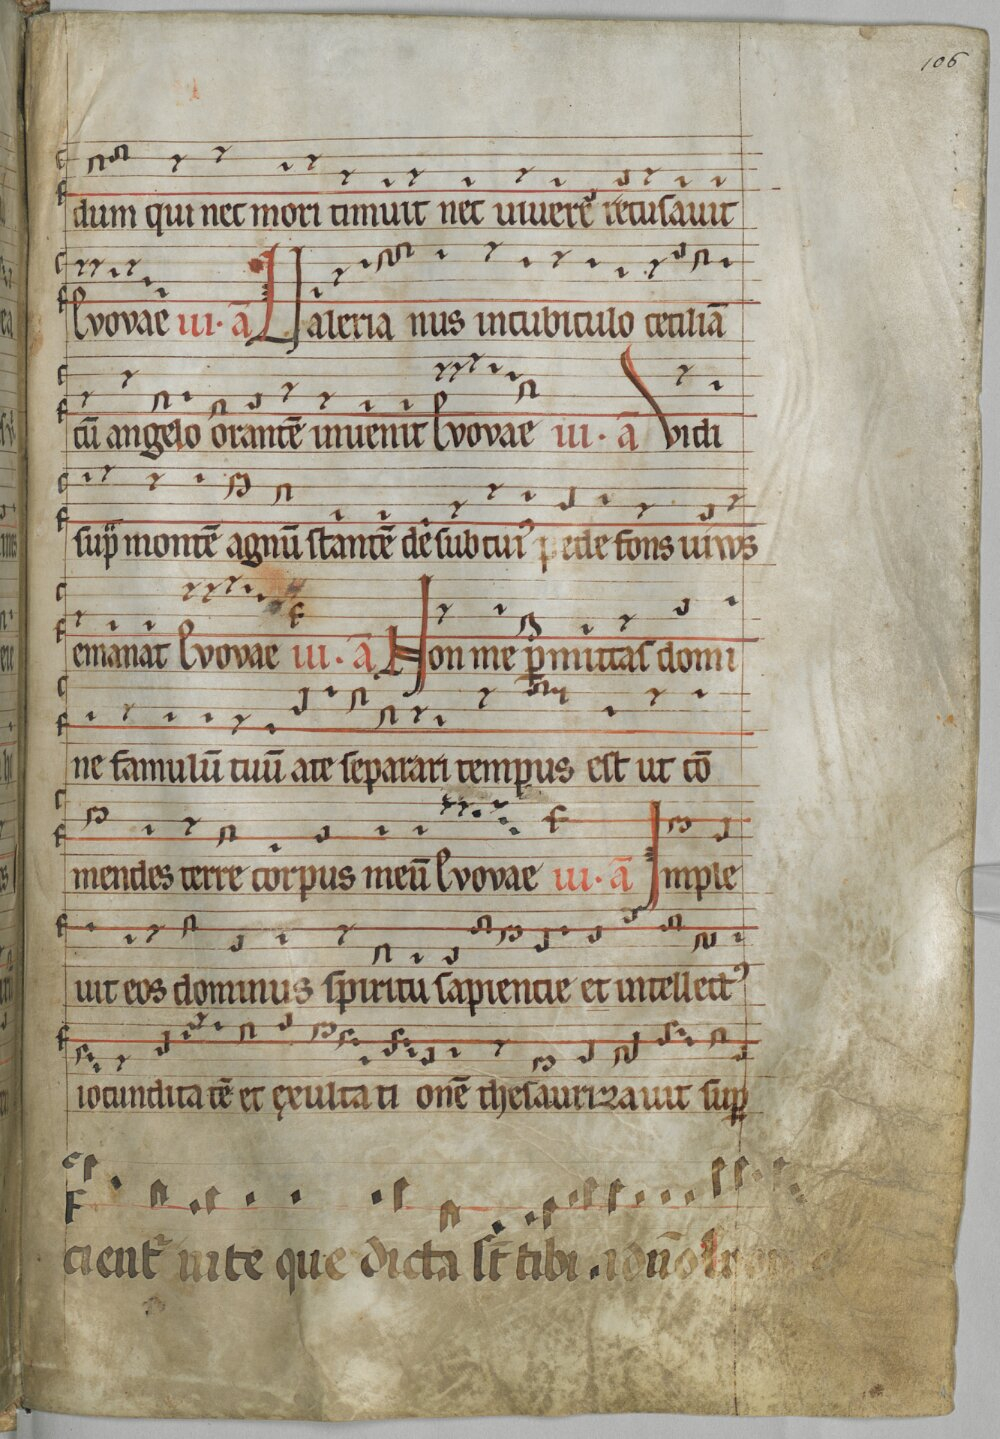 106
dum qui nec mori timuit nec uiuere recusauit
Evovae iii. a̅ Ualeria nus incubiculo ceciliā
cū angelo orantē inuenit Evovae iii. a̅ Vidi
sup̄ montē agnū stantē de subcui᷒ pede fons uiuus
emanat Evovae iii. a̅ Non me p̄mittas domi
ne famulū tuū ate separari tempus est ut cō
mendes terre corpus meū Evovae iii. a̅ Imple
uit eos dominus spiritu sapiencie et intellect᷒
iocundita tē et exulta ti onē thesaurizauit sup̄
cient uite que dicta st̄ tibi a dn̄o